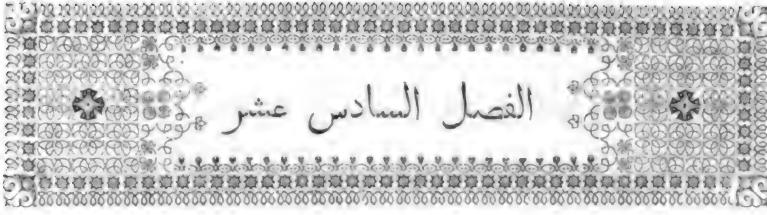 الفصل السادس عشر